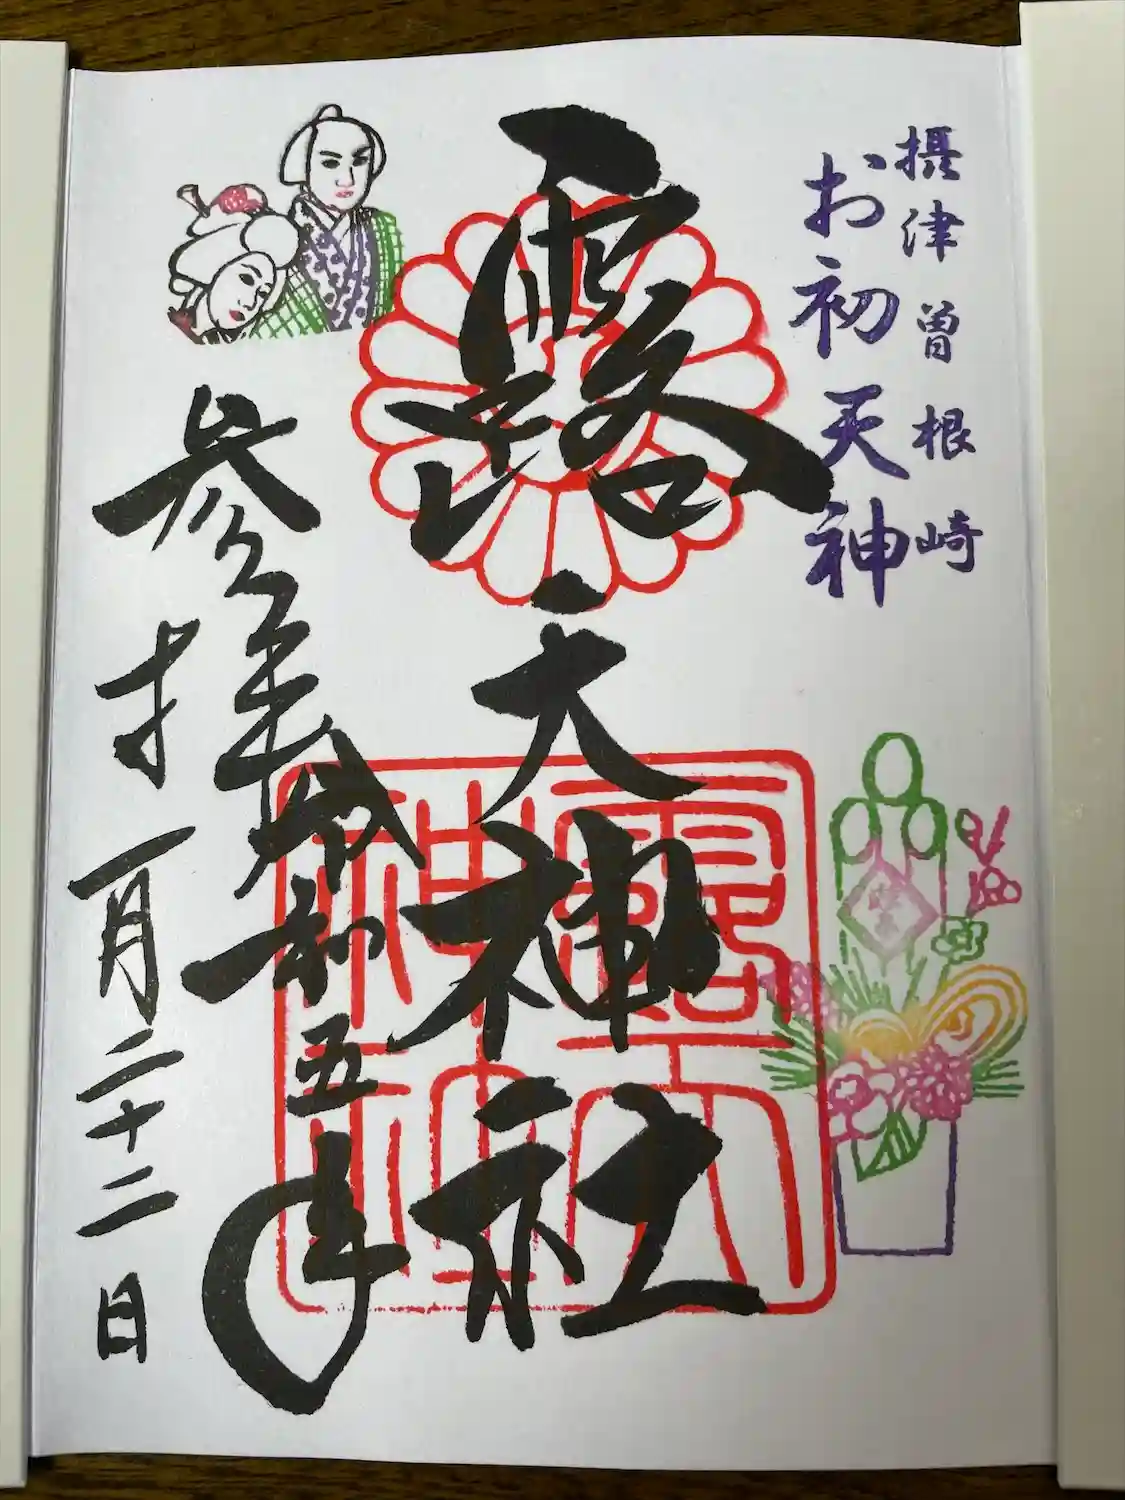 摂津曽根崎
お初天神
露天神社
露天
神社
参拝
令和五年
一月二十二日